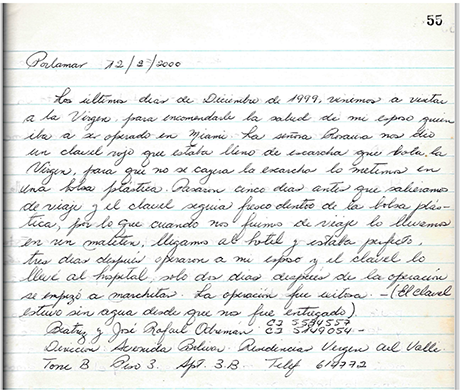 55
Porlamar 12/2/2000
Los últimos dias de Diciembre de 1999, venimos a visitar
a la Virgen, para encomendarle la salud de mi esposo quien
iba a ser operado en Miami. La señora Rosaura nos dio
un clavel rojo que estaba lleno de escarcha que bota la
Virgen, para que no se cayera la escarcha lo metimos en
una bolsa plástica. Pasaron cinco dias antes que salieramos
de viaje y el clavel seguia fresco dentro de la bolsa plás-
tica, por lo que cuando nos fuimos de viaje lo llevamos
en un maletin, llegamos al hotel y estaba perfecto,
tres dias después operaron a mi esposo y el clavel lo
llevé al hospital, solo dos dias después de la operación
se empezó a marchitar. La operación fue exitosa - (El clavel
estuvo sin agua desde que nos fue entregado)
Beatriz y José Rafael
Direccion Avenida Bolivar Residencia Virgen del Valle
Torre B Piso 3. Apt. 3.B. Telf 614772